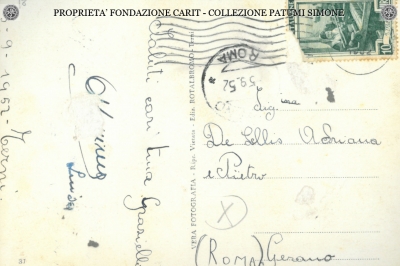 PROPRIETA' FONDAZIONE CARIT - COLLEZIONE PATUMI SIMONE
-9-1952-Terni.
Saluti cari tua Graziella
VERA FOTOGRAFIA - Ripr. Vietata - Ediz. ROTALBRUNO - Terni
ROMA
5.9.52
10
De Lellis Adriana
e Pietro
(ROMA) Gerano
87